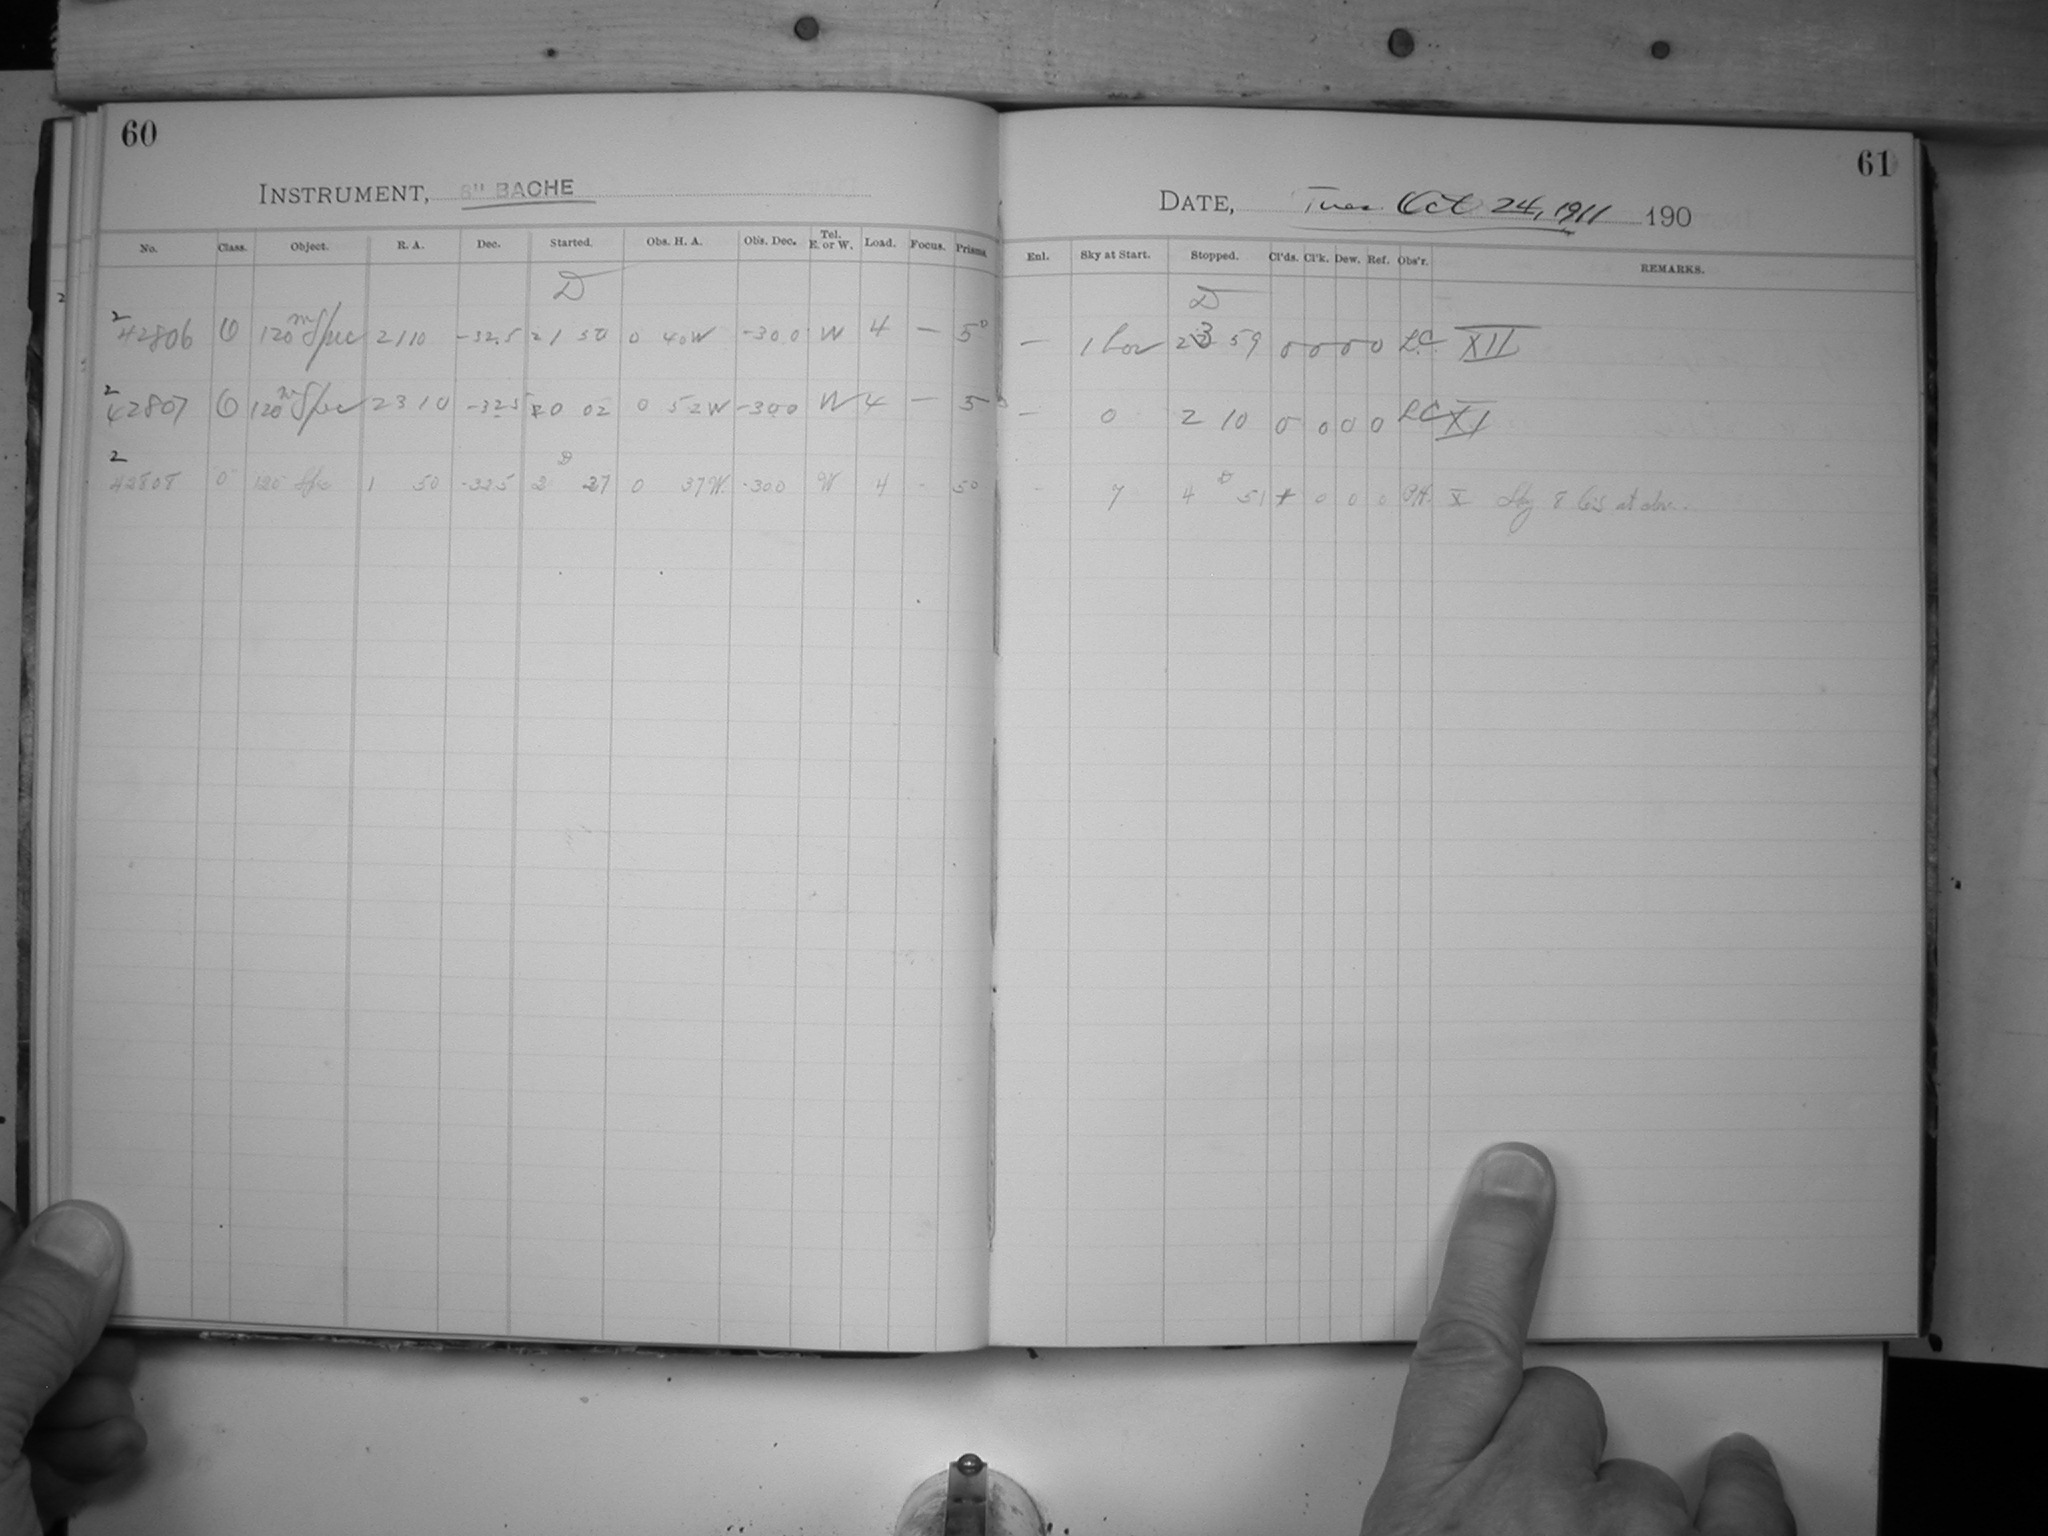 60
INSTRUMENT, 8" BACHE
No. Class. Object. R. A. Dec. Started. Obs. H. A. Obs. Dec. Tel. E. or W. Load. Focus. Prisms.
D
2
42806 O 120m Spec 21 10 -32.5 21 50 0 40W -30.0 W 4 — 5°
2
42807 O 120m Spec 23 10 -32.5 0 02 0 52W -30.0 W 4 — 5°
2
42808 O 120 Spec 1 50 -32.5 2 D 27 0 37W. -30.0 W 4 - 5°
61
DATE, Tues Oct 24, 1911 190
Enl. Sky at Start. Stopped. Cl'ds. Cl'k. Dew. Ref. Obs'r. REMARKS.
D
— 1 23 59 0 0 0 0 L.C. XII
— 0 2 10 0 0 0 0 LC XI
- 7 4 D 51 + 0 0 0 X Sky 8 at